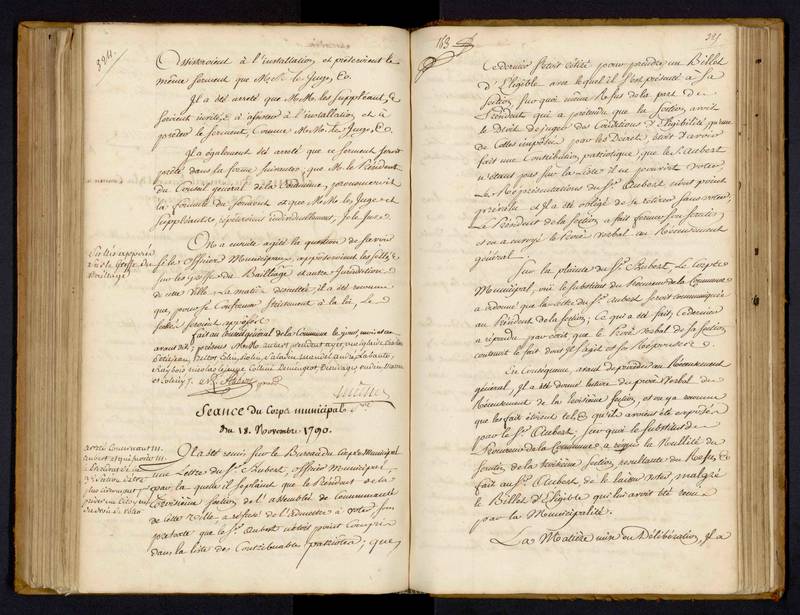 394.
Assisteroient à l'installation, et prêteroient le
même serment que M.M. les Juges, &c.
Il a été arrêté que M.M. les Suppléants, &
seroient invités à assister à l'installation, et à
prêter le serment, comme M.M. les Juges, &c.
Il a également été arrêté que ce serment seroit
prêté dans la forme suivante; que M. le Président
du Conseil général de la Commune, prononceroit
la formule du serment, et que M.M. les Juges et
Suppléants, répéteroient individuellement, Je le jure.
Scellés apposés
sur le Greffe du
Bailliage
On a ensuite agité la question de savoir
si les Officiers Municipaux, apposeroient les scellés
sur les greffes du Bailliage et autres Jurisdictions
de cette ville. La matière discutée, il a été reconnu
que, pour se conformer strictement à la loi, Les
scellés seroient apposés.
Fait au Conseil général de la Commune les jour, mois et an
avant dits; présens M.M. Aubert président
Séance du Corps municipal
du 18. Novembre 1790.
arrêté concernant M.
Aubert
Il a été remis sur le Bureau du Corps Municipal
une Lettre du S.r Aubert, officier Municipal,
par la quelle il se plaint que le Président de la
troisième Section de l'assemblée de Communauté
de cette Ville, a refusé de l'admettre à voter, sous
prétexte que le S.r Aubert n'étoit point compris
dans la liste des Contribuables patriotes; que
163
ce dernier s'étoit retiré pour prendre un Billet
d'Eligible avec lequel il s'est présenté à sa
Section, sur quoi même Refus de la part du
Président qui a prétendu que la Section avoit
le Droit de juger des Conditions d'Eligibilité, qu'une
de celles imposées par les Décrets, étoit d'avoir
fait une Contribution patriotique; que le S. Aubert
n'étant pas sur la liste il ne pouvoit voter.
Les Représentations du S.r Aubert n'ont point
prévalu et il a été obligé de se retirer sans voter;
Le Président de la Section, a fait fermer son scrutin,
et en a envoyé le Procès verbal au Recensement
général.
Sur la plainte du S.r Aubert, Le Corps
Municipal, ouï le Substitut du Procureur de la Commune
a ordonné que la lettre du S.r Aubert seroit communiquée
au Président de la Section; Ce qui a été fait, ce dernier
a répondu par écrit que le Procès Verbal de sa Section,
contenoit le fait dont il s'agit et sa Réponse.
En Conséquence, avant de procéder au Recensement
général, Il a été donné lecture du procès verbal de
Recensement de la troisième Section, et on y a reconnu
que les faits étoient tels qu'ils avoient été exposés
par le S.r Aubert; sur quoi le Substitut du
Procureur de la Commune a requis la Nullité du
scrutin de la troisième Section, resultante du Refus
fait au S.r Aubert, de le laisser voter, malgré
le Billet d'Eligible qui lui avoit été remis
par la Municipalité.
La Matière mise en Délibération, Il a